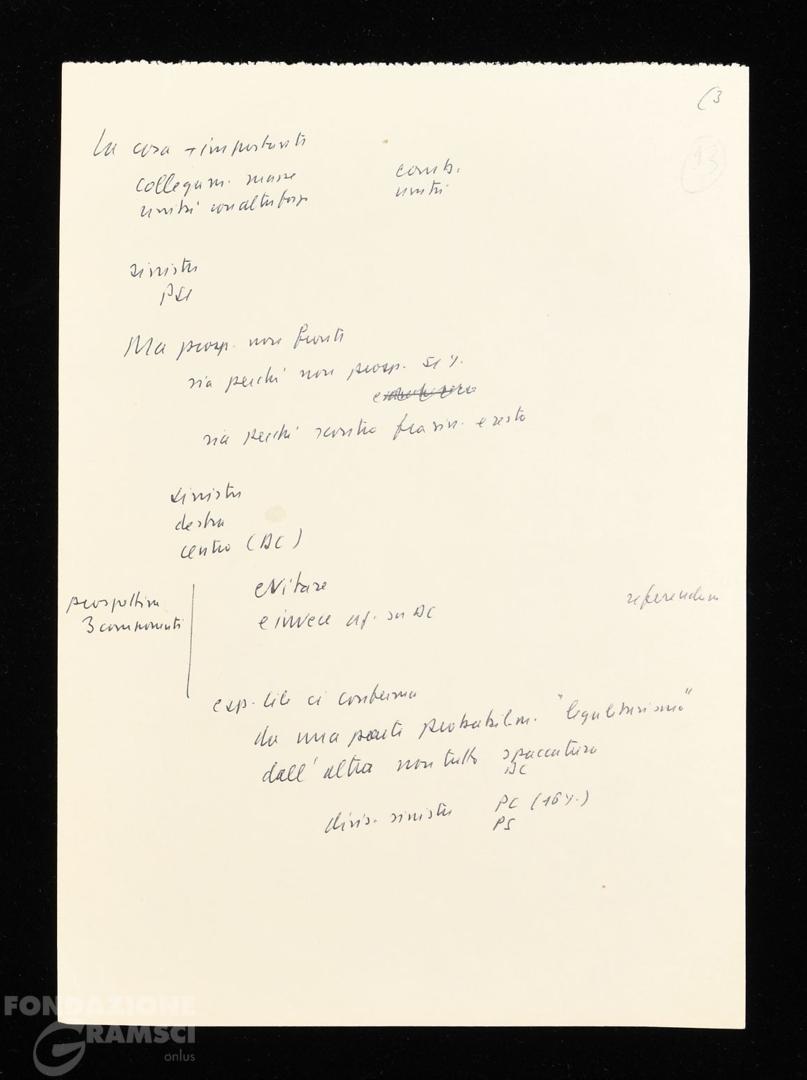 (3
13
La cosa + importante
collegam. masse
comb.
unità con altre forze
unità
sinistra
PSI
Ma prosp. non fronte
sia perché non prosp. 51%
sia perché scontro fra sin. e resto
sinistra
destra
centro (DC)
prospettiva
3 componenti
evitare
e invece inf. su DC
referendum
esp. Cile ci conferma
da una parte probabilm. "legalitarismo"
dall'altra non tutto spaccatura
DC
divis. sinistra PC (16%)
PS
FONDAZIONE
GRAMSCI
onlus